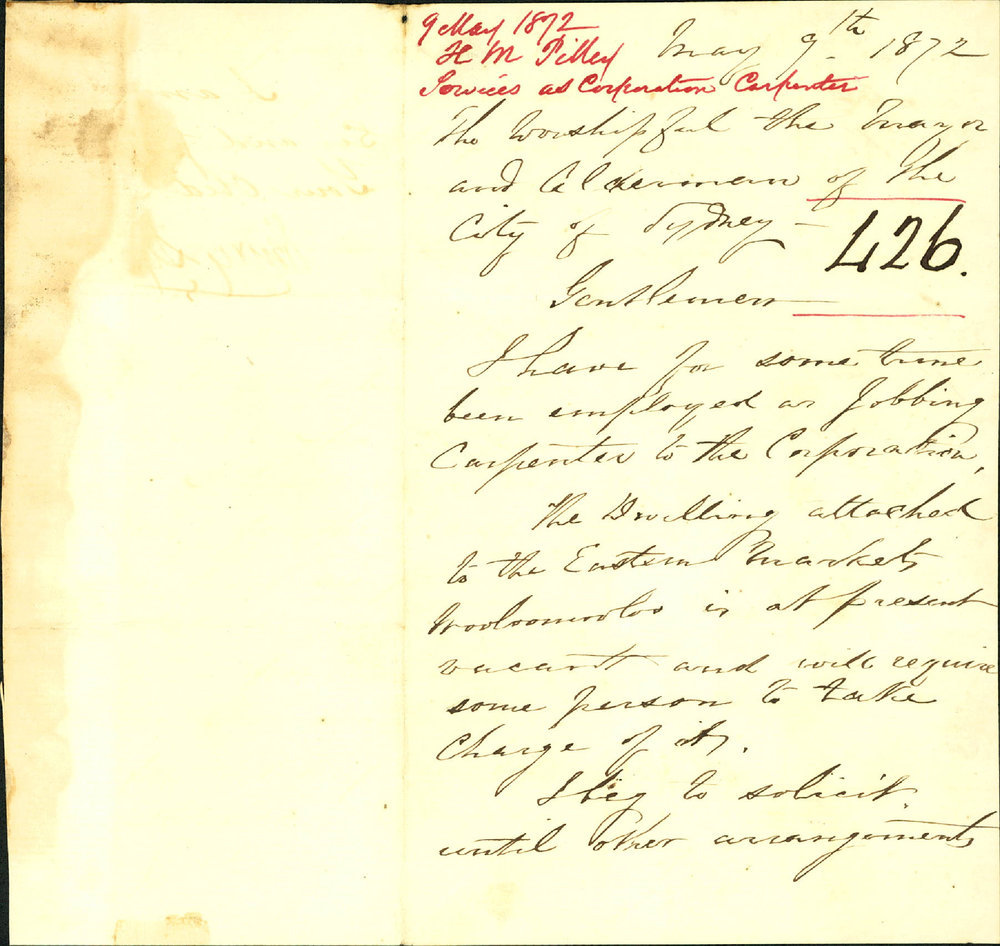 9 May 1872
H M Pilley
Services as Corporation Carpenter
May 9th 1872
The Worshipful the Mayor
and Alderman of the
City of Sydney –
426.
Gentlemen
I have for some time
been employed as Jobbing
Carpenter to the Corporation,
The Dwelling attached
to the Eastern Markets
Wooloomooloo is at present
vacant and will require
some person to take
charge of it.
I beg to solicit
until other arrangements